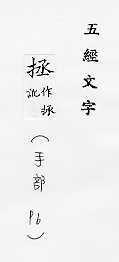 五經文字
拯
作
訛
(手部 P6)